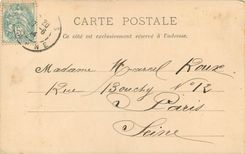 CARTE POSTALE
Ce côté est exclusivement réservé à l'adresse.
Madame Marcel Roux
Rue Bouchy N° 12
Paris
Seine